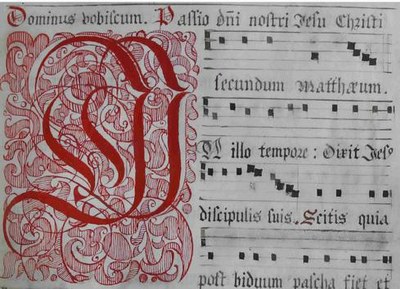 Dominus vobiscum. Passio dñi nostri Jesu Christi
secundum Matthæum.
IN illo tempore: Dixit Jesꝰ
discipulis suis. Scitis quia
post biduum pascha fiet et